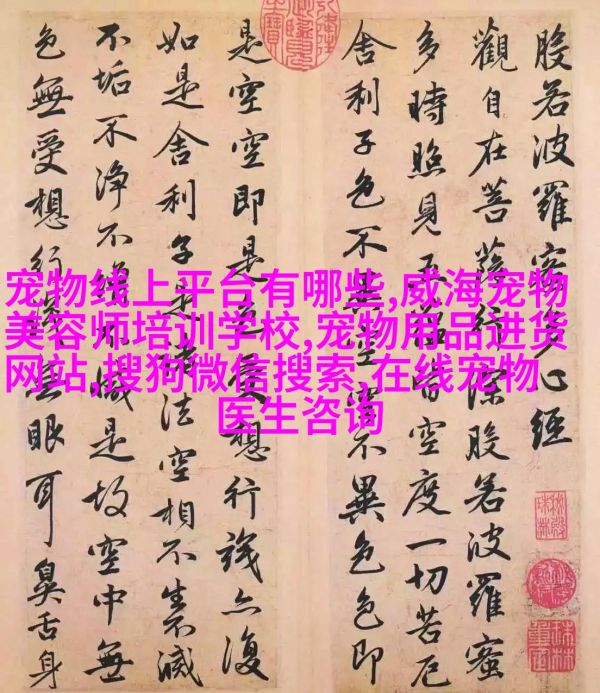 般若波羅蜜多心經
觀自在菩薩行深般若波羅蜜
多時照見五蘊皆空度一切苦厄
舍利子色不異空空不異色色即
是空空即是色受想行識亦復
如是舍利子是諸法空相不生不滅
不垢不淨不增不減是故空中無
色無受想行識無眼耳鼻舌身
宠物线上平台有哪些,威海宠物
美容师培训学校,宠物用品进货
网站,搜狗微信搜索,在线宠物
医生咨询